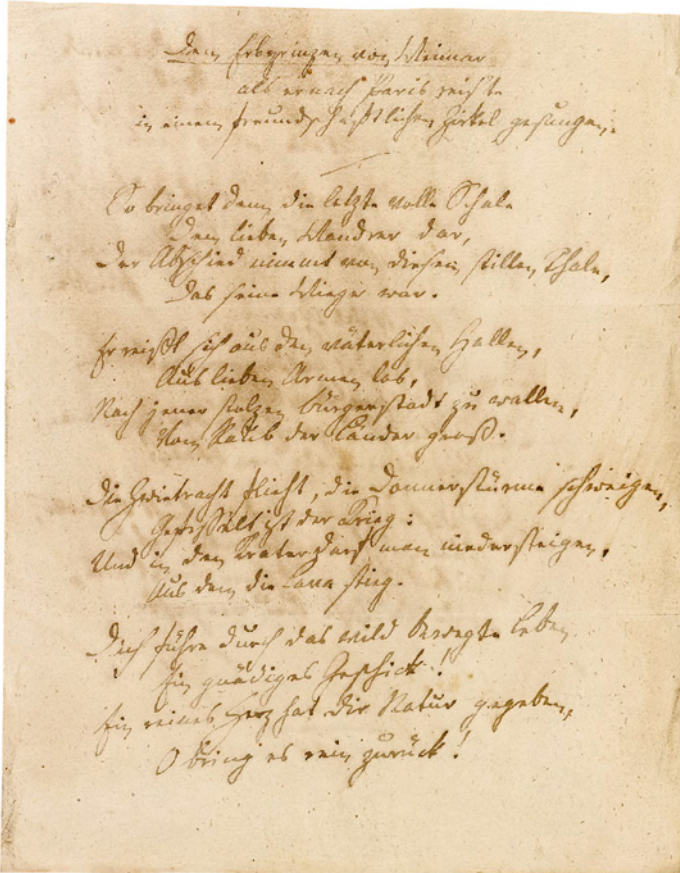 Dem Erbprinzen von Weimar
als er nach Paris reis'te
in einem freundschaftlichen Zirkel gesungen.
So bringet denn die letzte volle Schale
Dem lieben Wandrer dar,
Der Abschied nimmt von diesem stillen Thale,
Das seine Wiege war.
Er reißt sich aus den väterlichen Hallen,
Aus lieben Armen los,
Nach jener stolzen Bürgerstadt zu wallen,
Vom Raub der Länder groß.
Die Zwietracht flieht, die Donnerstürme schweigen,
Gefesselt ist der Krieg:
Und in den Krater darf man niedersteigen,
Aus dem die Lava stieg.
Dich führe durch das wild bewegte Leben
Ein gnädiges Geschick!
Ein reines Herz hat dir Natur gegeben,
O bring es rein zurück!